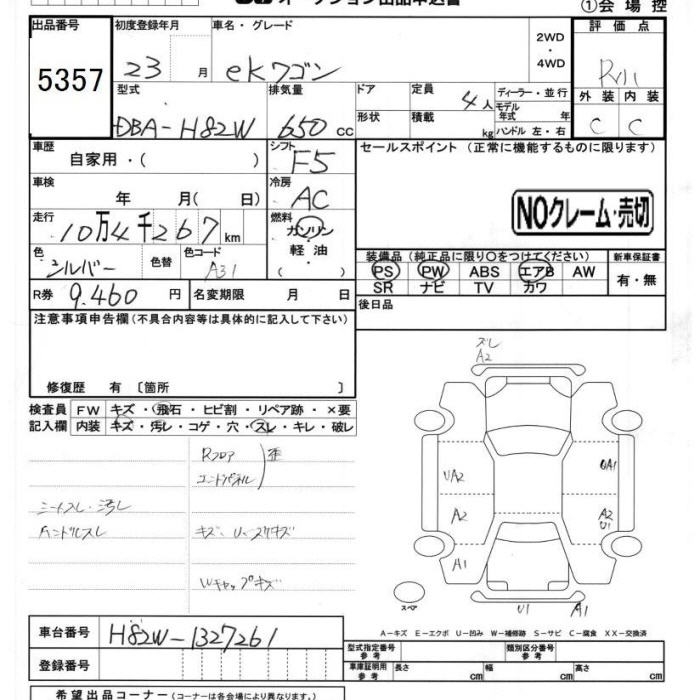 オークション出品申込書
①会場控
出品番号 初度登録年月 車名・グレード 評価点
5357 23 月 ekワゴン 2WD・4WD R11
型式 排気量 ドア 定員 4人 ディーラー・並行 外装 内装
DBA-H82W 650cc 形状 積載 kg モデル年式 年 ハンドル 左・右 C C
車歴 シフト セールスポイント（正常に機能するものに限ります）
自家用・（ ） F5
車検 冷房
年 月（ 日） AC
NOクレーム・売切
走行 燃料
10万4千267km ガソリン
軽油
（ ）
色 色替 色コード
シルバー A31
装備品（純正品に限り○をつけてください） 新車保証書
PS PW ABS エアB AW 有・無
SR ナビ TV カワ
R券 9.460 円 名変期限 月 日
後日品
注意事項申告欄（不具合内容等は具体的に記入して下さい）
修復歴 有 〔箇所 〕
検査員 FW キズ・飛石・ヒビ割・リペア跡・×要
記入欄 内装 キズ・汚レ・コゲ・穴・スレ・キレ・破レ
Rフロア
歪
ユニットパネル
シートスレ・汚レ
ハンドルスレ
キズ、
Wキャップキズ
スレ
A2
UA2
A2
A1
A2
U1
A1
U1
A1
スペア
A－キズ E－エクボ U－凹み W－補修跡 S－サビ C－腐食 XX－交換済
車台番号 H82W-1327261
登録番号
型式指定番号 参考 類別区分番号 参考
車庫証明用 参考 長さ cm 幅 cm 高さ cm
希望出品コーナー（コーナーは各会場により異なります）